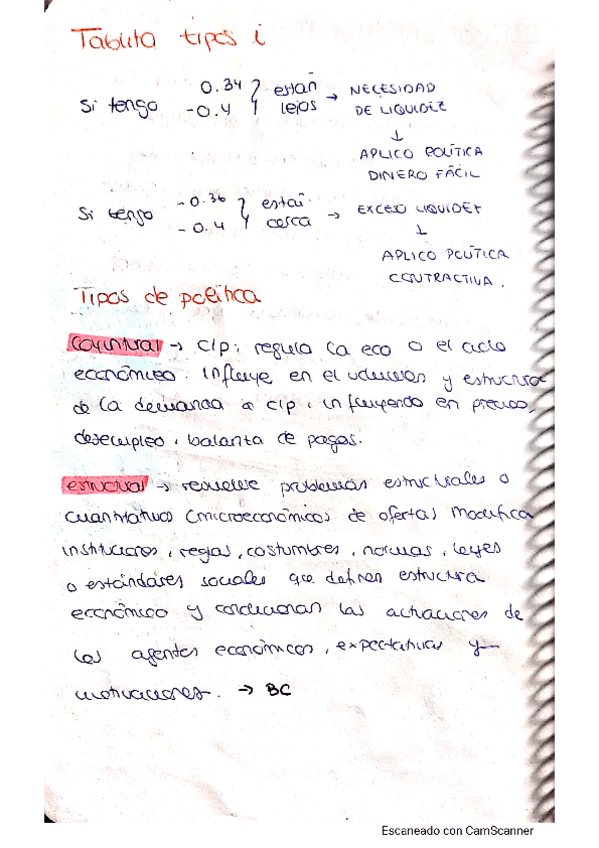 Tablita tipos i
Si tengo 0.34 -0.4 } están lejos → NECESIDAD DE LIQUIDEZ
↓
APLICO POLÍTICA
DINERO FÁCIL
Si tengo -0.36 -0.4 } están cerca → EXCESO LIQUIDEZ
↓
APLICO POLÍTICA
CONTRACTIVA.
Tipos de política
coyuntural → c/p: regula la eco o el ciclo
económico. Influye en el volumen y estructura
de la demanda a c/p, influyendo en precios,
desempleo, balanza de pagos.
estructural → resuelve problemas estructurales o
cuantitativos (microeconómicos de oferta) modifica
instituciones, reglas, costumbres, normas, leyes
o estándares sociales que definen estructura
económico y condicionan las actuaciones de
los agentes económicos, expectativas y
motivaciones. → BC
Escaneado con CamScanner